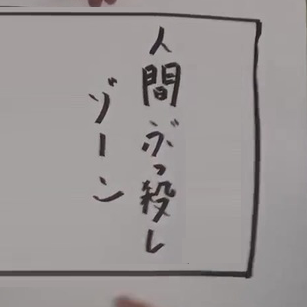 人間ぶっ殺し
ゾーン